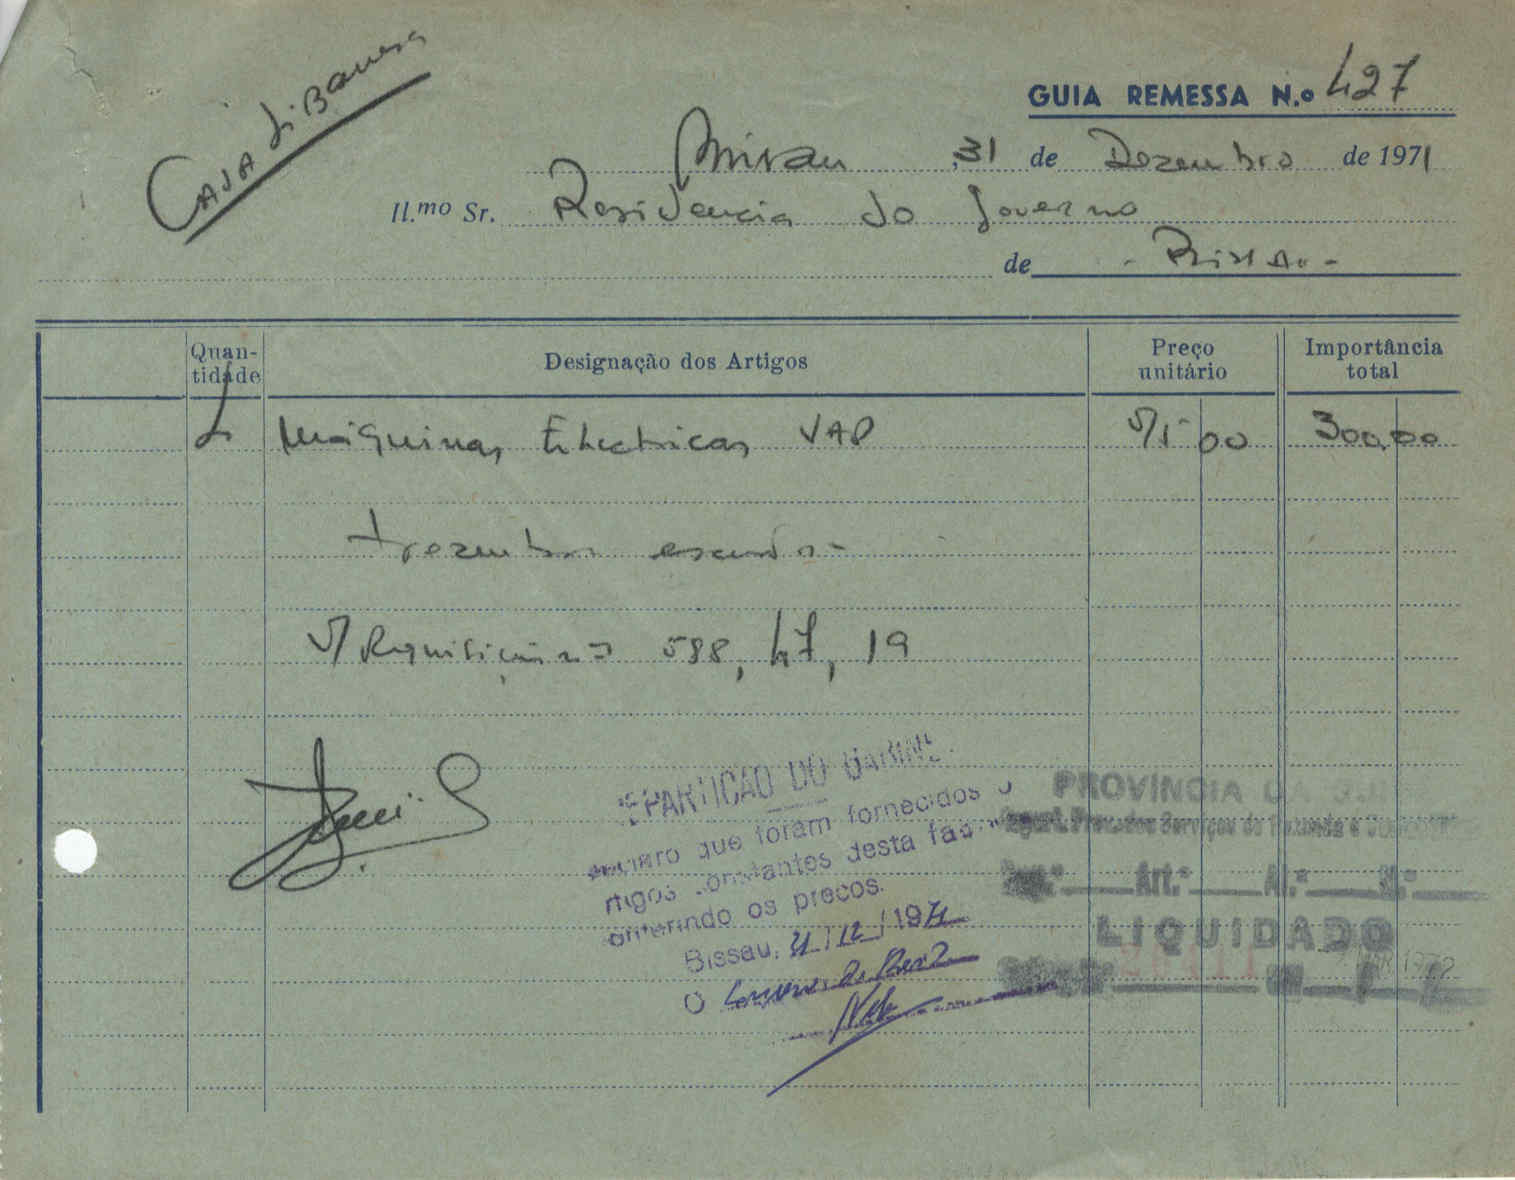 Casa Libanesa
GUIA REMESSA N.º 427
Bissau, 31 de Dezembro de 1971
Il.mo Sr. Residencia do Governo
de - Bissau -
Quan-
tidade
Designação dos Artigos
Preço
unitário
Importância
total
2 Máquinas Electricas VAP 00 300,00
trezentos escudos -
V/ Requisição nº 588, 47, 19
EPARTIÇÃO DO GABINE
que foram fornecidos o
rtigos constantes desta fac
os preços.
Bissau, 31/12/1971
O
PROVÍNCIA DA GUI
Repart. Prov. dos Serviços de Fazenda e
Cap.º Art.º Al.ª N.º
LIQUIDADO
1972